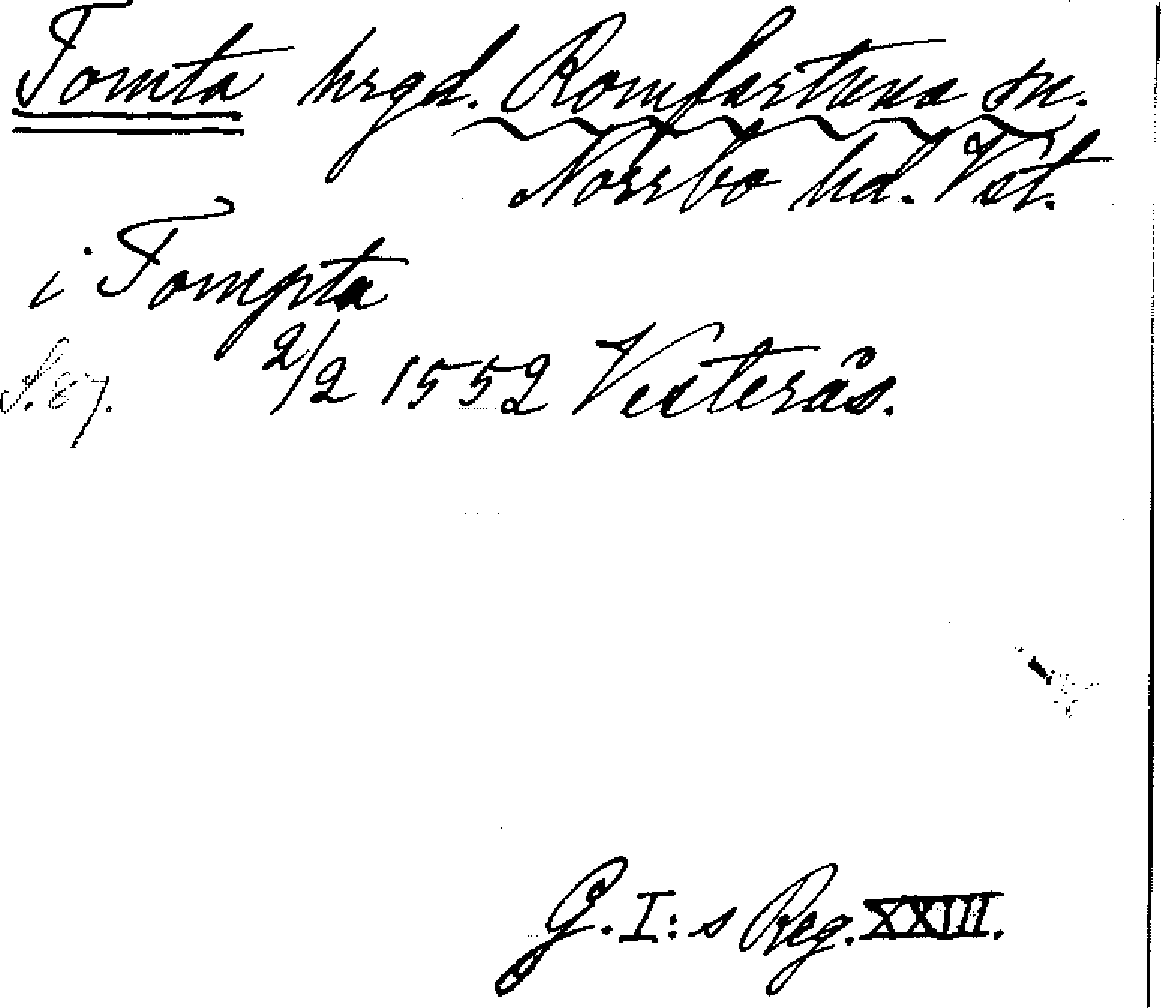 Tomta hrgd. Romfartuna sn.
Norrbo hd. Vstl.
i Tompta
2/2 1552 Vesterås.
S. 87.
G. I:s Reg. XXIII.